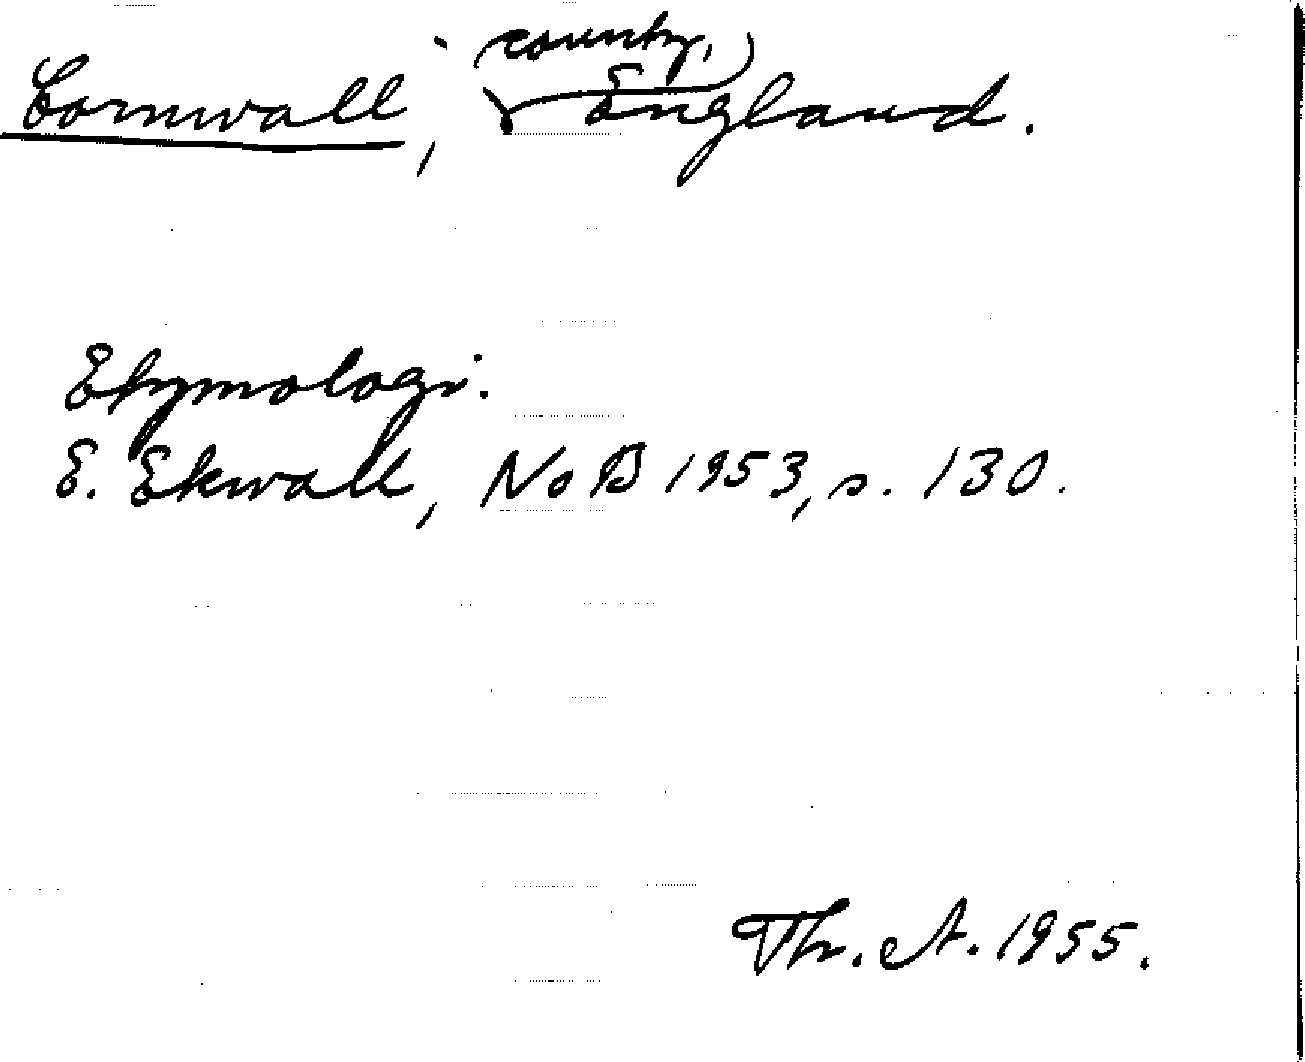 Cornwall, county, England.
Etymologi.
E. Ekwall, NoB 1953, s. 130.
Th. A. 1955.